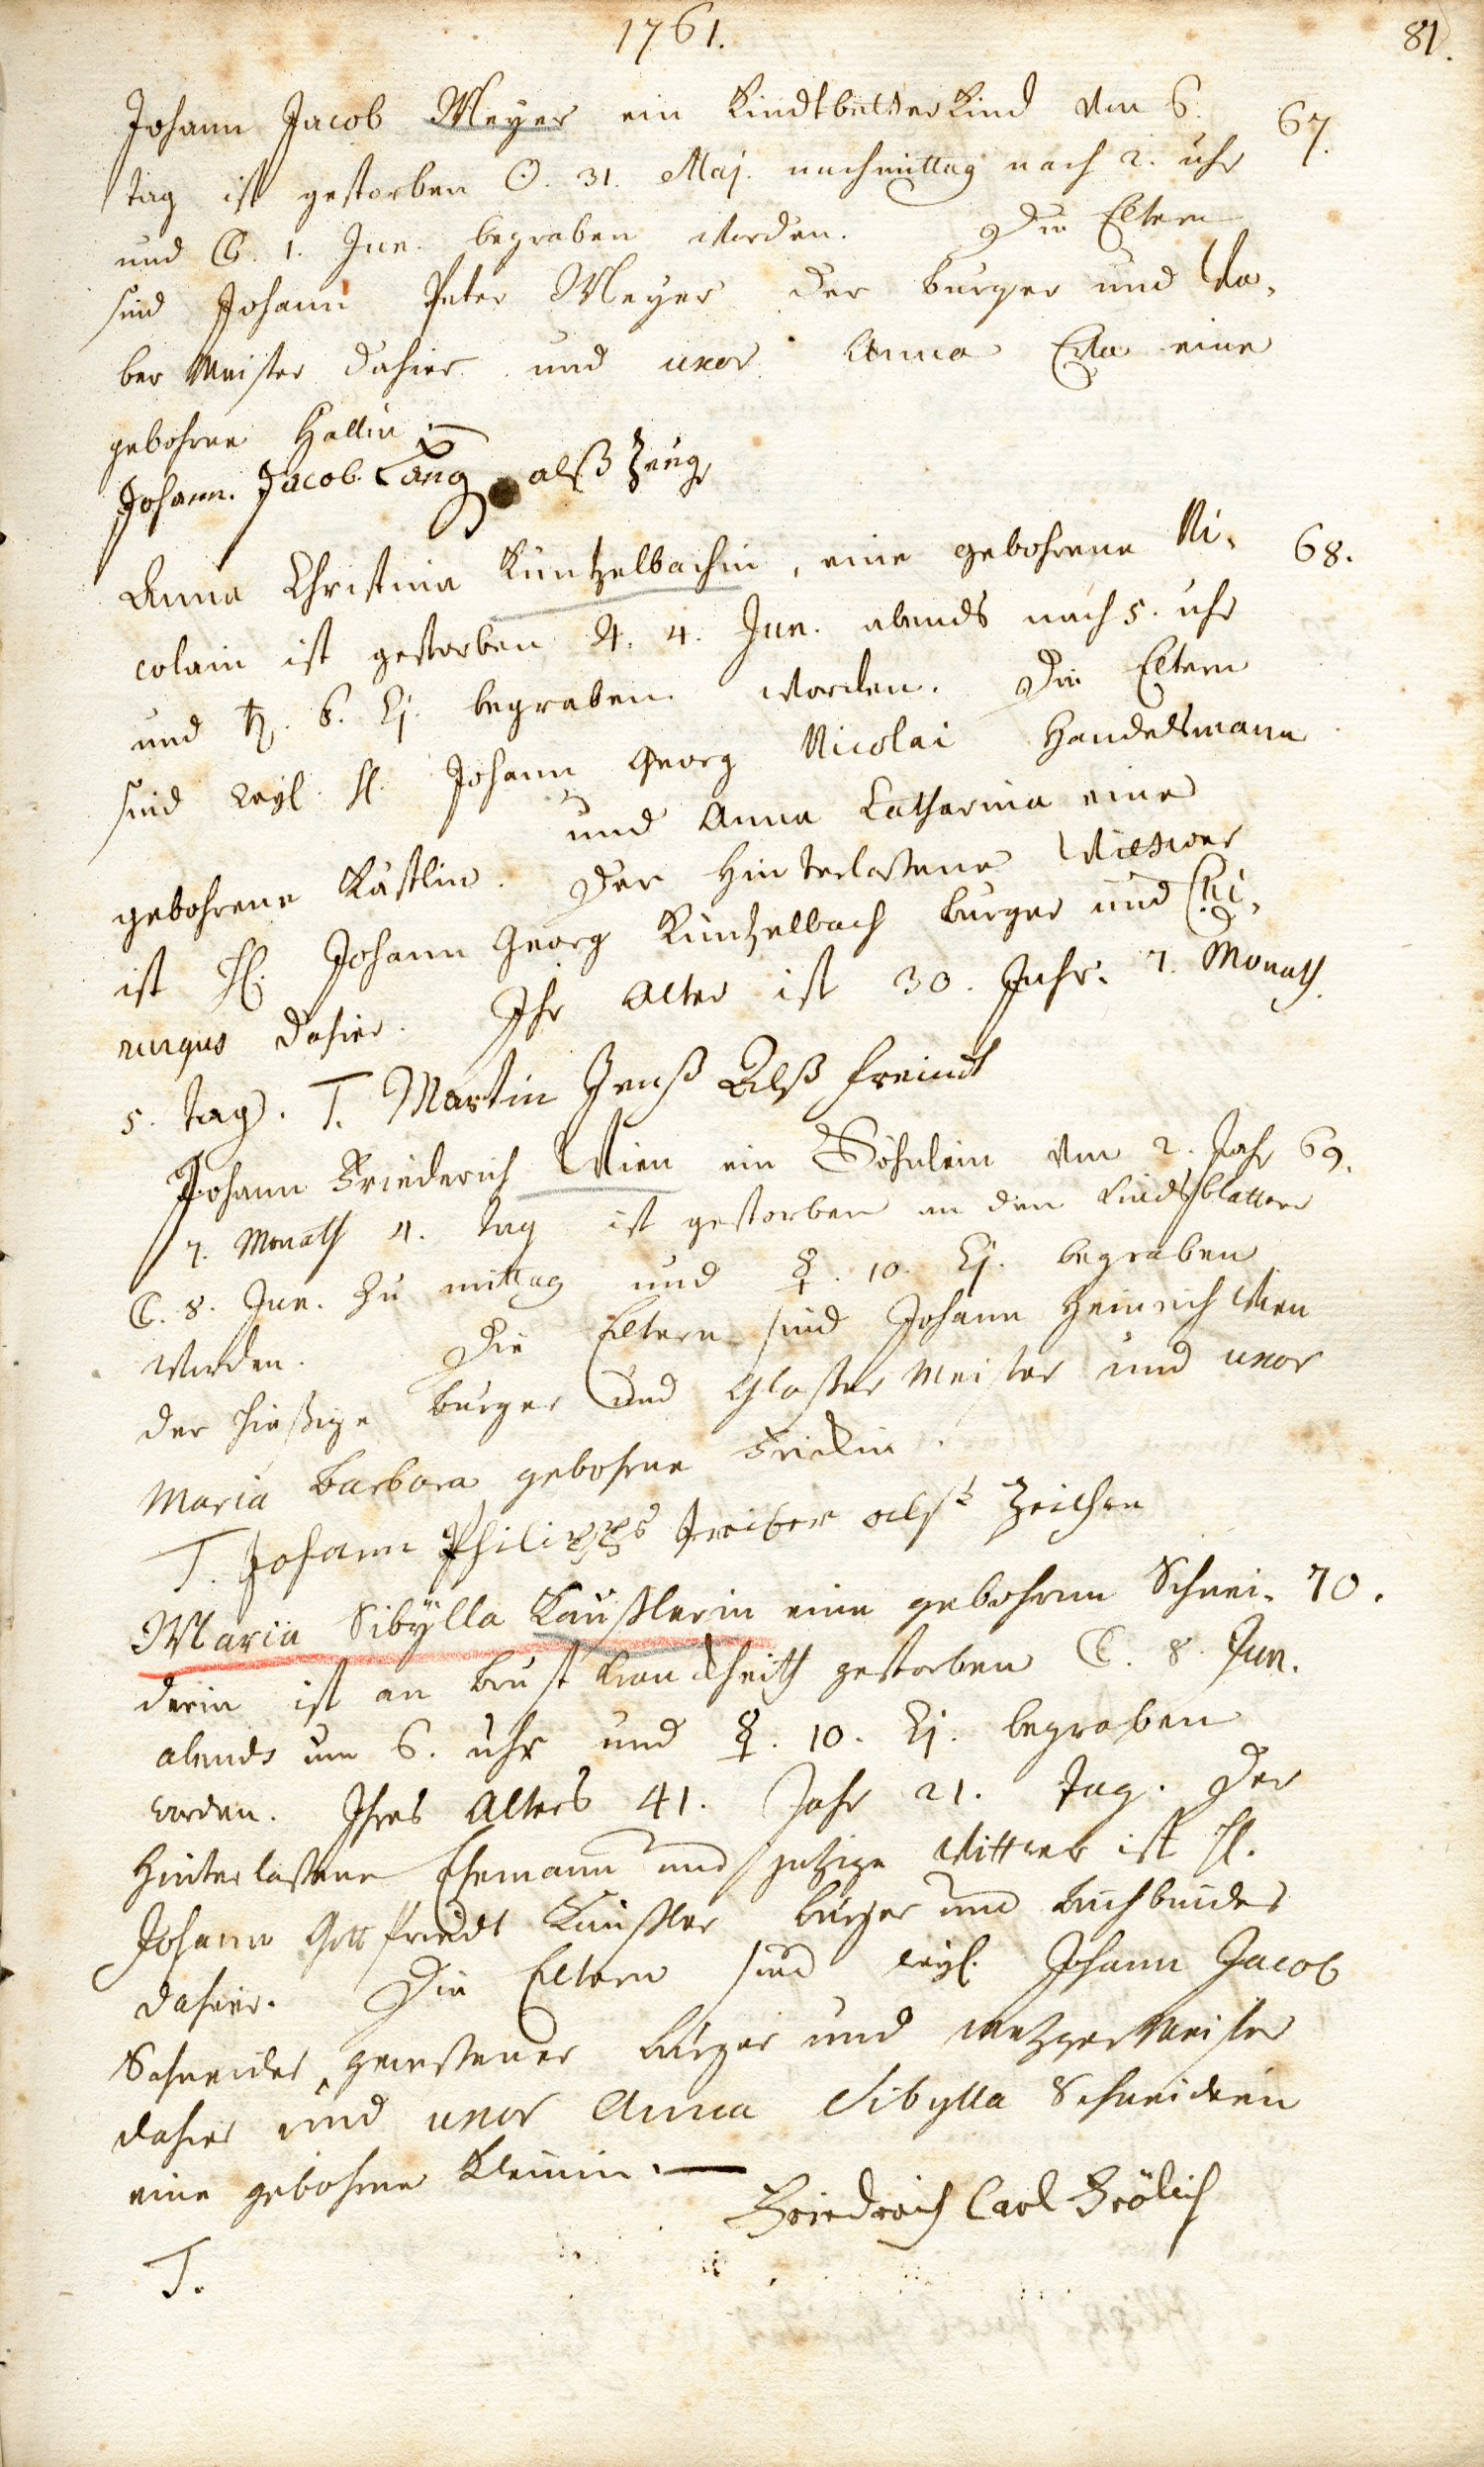 1761.
81.
Johann Jacob Meyer ein Kindtbetterkind von 6. 67.
tag ist gestorben ☉. 31. Maj. nachmittag nach 2. uhr
und ☾. 1. Jun. begraben worden. Die Eltern
sind Johann Peter Meyer der burger und We-
ber Meister dahier und uxor Anna Eva eine
gebohrne Hallin.
Johann. Jacob Lang alß Zeug
Anna Christina Küntzelbachin, eine gebohrene Ni- 68.
colain ist gestorben ♃. 4. Jun. abends nach 5. uhr
und ♄. 6. Ej. begraben worden. Die Eltern
sind weyl. H. Johann Georg Nicolai Handelsmann
und Anna Catharina eine
gebohrene Kästlin. Der hinterlaßene Wittwer
ist H. Johann Georg Küntzelbach burger und Chi-
rurgus dahier. Ihr Alter ist 30. Jahr. 7. Monath.
5. tag. T. Martin Jenß Alß freindt
Johann Friederich Wien ein Söhnlein von 2. Jahr 69.
7. Monath 4. tag ist gestorben an den Kindsblattern
☾. 8. Jun. zu mittag und ☿. 10. Ej. begraben
worden. Die Eltern sind Johann Heinrich Wien
der hießige burger und Glaßer Meister und uxor
Maria Barbara gebohrne Frickin.
T. Johann Philipps Treiber alß Zeichen
Maria Sibÿlla Kaußlerin eine gebohrene Schnei- 70.
derin ist an brust Kranckheith gestorben ☾. 8. Jun.
abends um 6. uhr und ☿. 10. Ej. begraben
worden. Ihres Alters 41. Jahr 21. tag. Der
hinterlaßene Ehemann und jetzige Wittwer ist H.
Johann Gottfriedt Kaußler burger und buchbinder
dahier. Die Eltern sind weyl. Johann Jacob
Schneider, geweßener burger und Metzger Meister
dahier und uxor Anna Sibylla Schneiderin
eine gebohrne Kleinin.
Friedrich Carl Frölich
T.